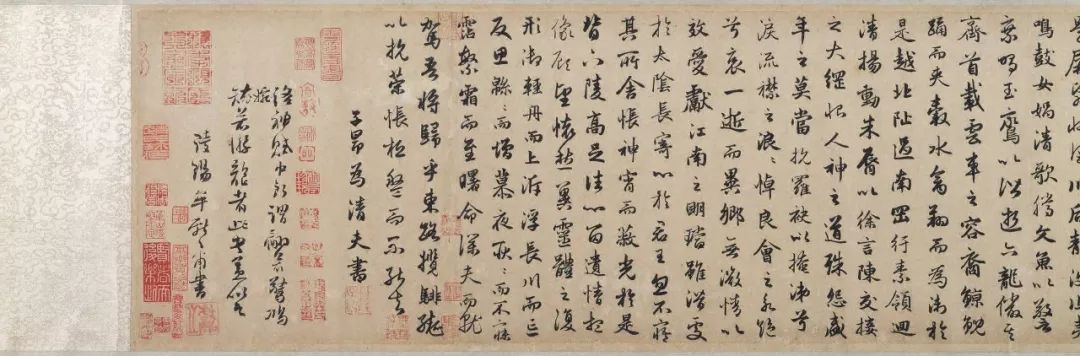 屏翳收風川后静波
鳴鼓女媧清歌騰文魚以警
乘鳴玉鸞以偕逝六龍儼其
齊首載雲車之容裔鯨鯢
踊而夾轂水禽翔而為衛於
是越北沚過南岡紆素領迴
清揚動朱脣以徐言陳交接
之大綱恨人神之道殊怨盛
年之莫當抗羅袂以掩涕兮
淚流襟之浪〻悼良會之永絕
兮哀一逝而異鄉無微情以
效愛獻江南之明璫雖潛處
於太陰長寄心於君王忽不悟
其所舍悵神宵而蔽光於是
背下陵高足往心留遺情想
像顧望懷愁冀靈體之復
形御輕舟而上泝浮長川而忘
反思綿〻而增慕夜耿〻而不寐
霑繁霜而至曙命僕夫而就
駕吾將歸乎東路攬騑轡
以抗策悵桓盤而不能去
子昂為清夫書
洛神賦中所謂翩若驚鴻
婉若遊龍者此書蓋似之
陵陽牟書